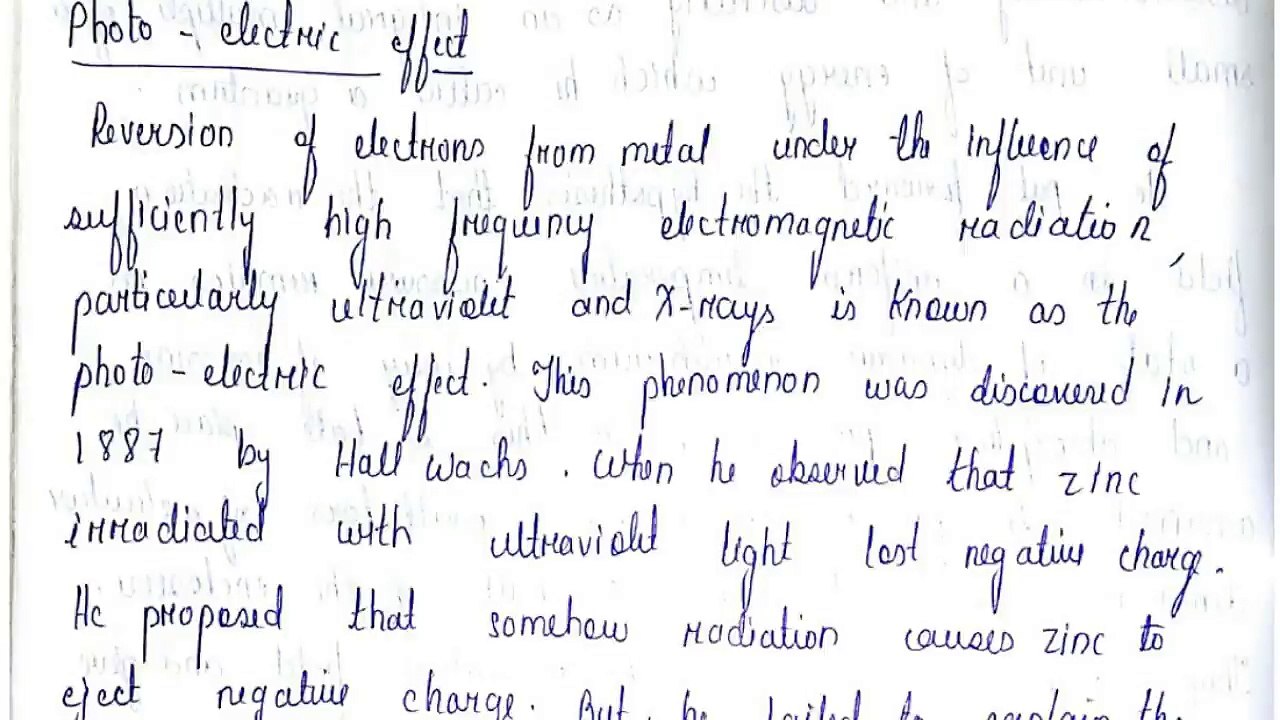 Photo - electric effect
Reversion of electrons from metal under the influence of
sufficiently high frequency electromagnetic radiation,
particularly ultraviolet and X-rays is known as the
photo - electric effect. This phenomenon was discovered in
1887 by Hall wachs. When he observed that zinc
irradiated with ultraviolet light lost negative charge.
He proposed that somehow radiation causes zinc to
eject negative charge. But, he failed to explain the